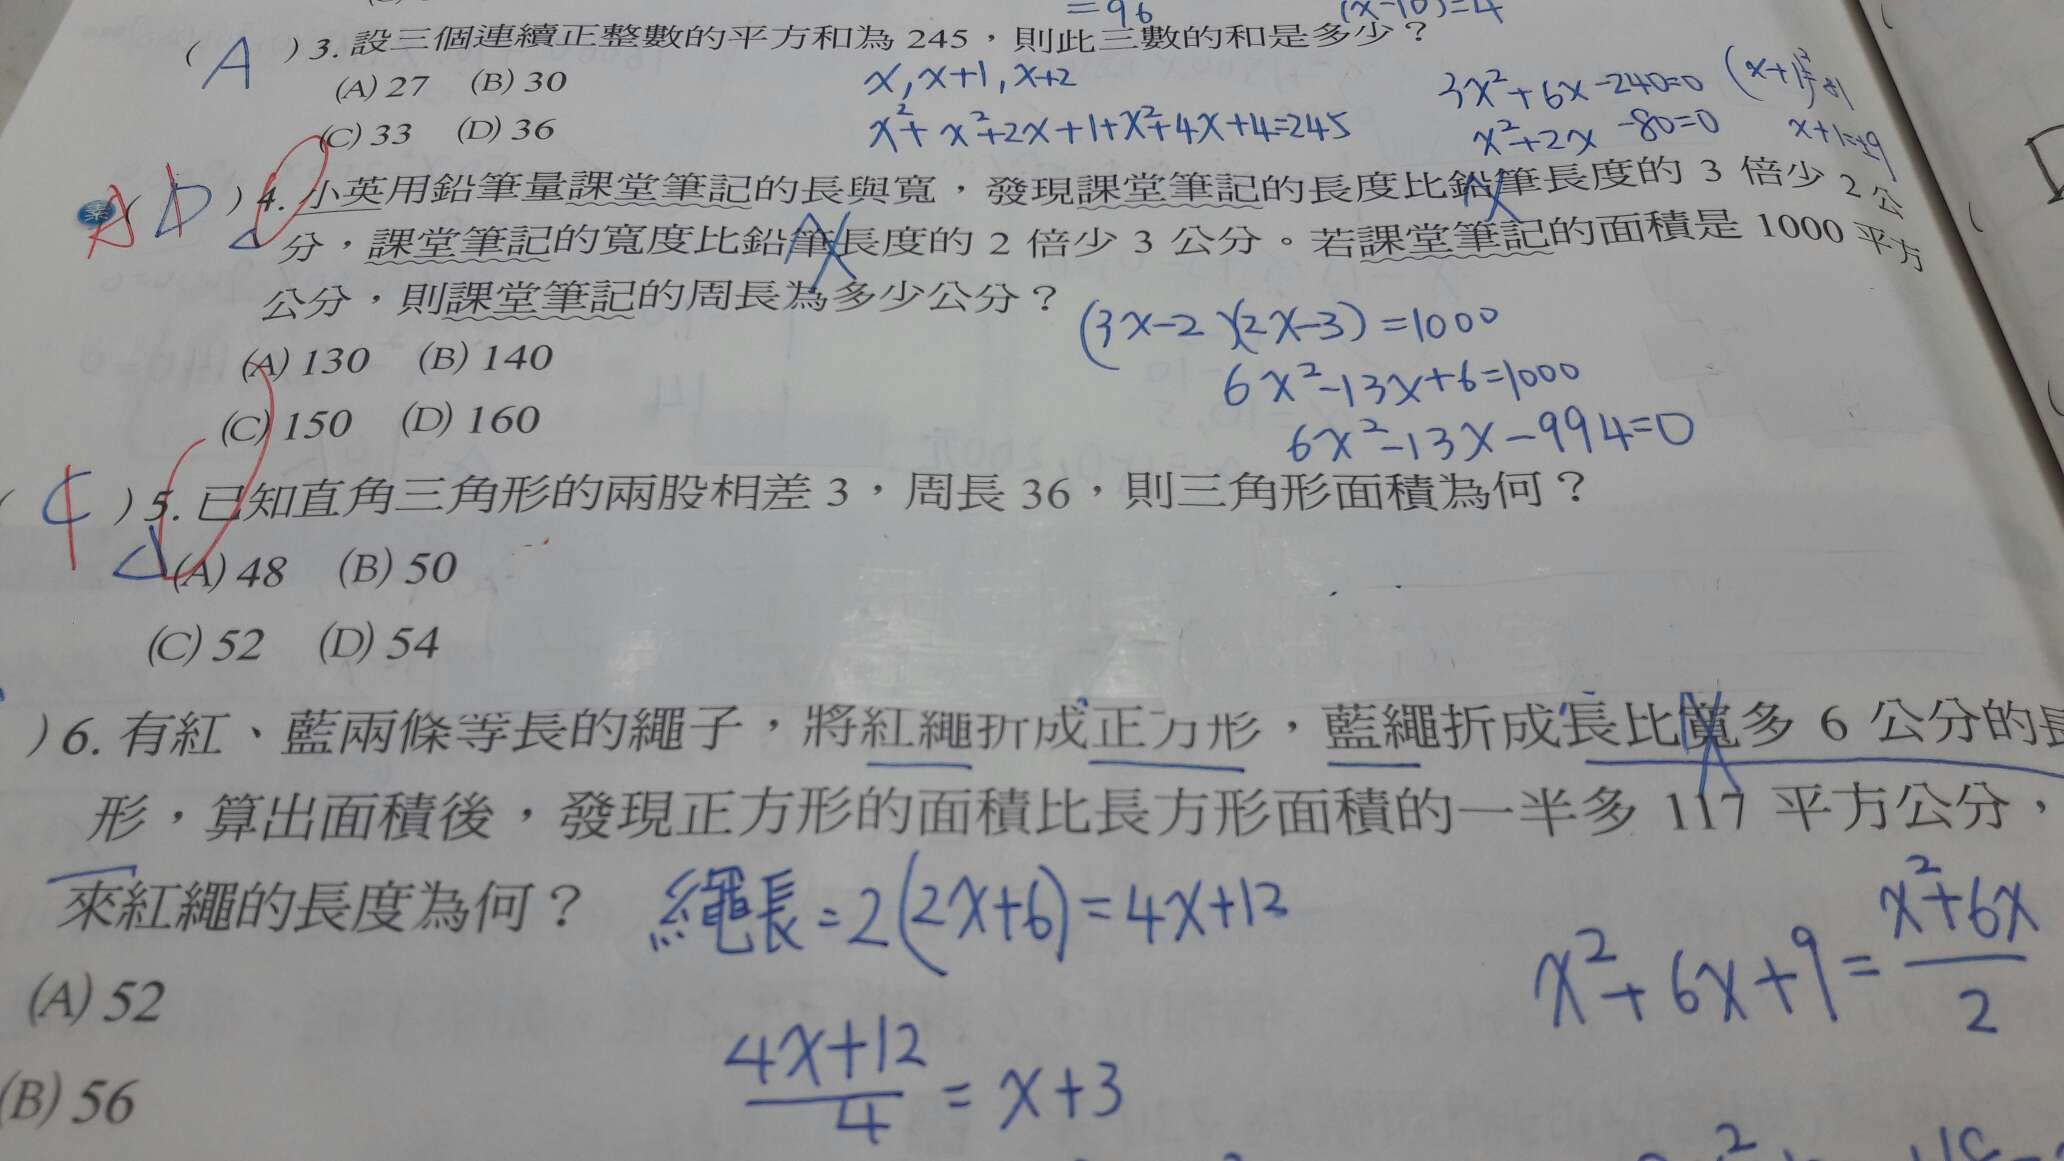 =96
(x-10)=4
(A)3.設三個連續正整數的平方和為 245,則此三數的和是多少?
(A) 27 (B) 30
(C) 33 (D) 36
x, x+1, x+2
x²+x²+2x+1+x²+4x+4=245
3x²+6x-240=0
x²+2x-80=0
(x+1)²=81
x+1=±9
素 A(D)4.小英用鉛筆量課堂筆記的長與寬,發現課堂筆記的長度比鉛筆長度的 3 倍少 2 公
分,課堂筆記的寬度比鉛筆長度的 2 倍少 3 公分。若課堂筆記的面積是 1000 平方
公分,則課堂筆記的周長為多少公分?
(A) 130 (B) 140
(C) 150 (D) 160
(3x-2)(2x-3)=1000
6x²-13x+6=1000
6x²-13x-994=0
( )5.已知直角三角形的兩股相差 3,周長 36,則三角形面積為何?
(A) 48 (B) 50
(C) 52 (D) 54
)6.有紅、藍兩條等長的繩子,將紅繩折成正方形,藍繩折成長比寬多 6 公分的長
形,算出面積後,發現正方形的面積比長方形面積的一半多 117 平方公分,
來紅繩的長度為何?
(A) 52
(B) 56
繩長=2(2x+6)=4x+12
4x+12/4=x+3
x²+6x+9=x²+6x/2